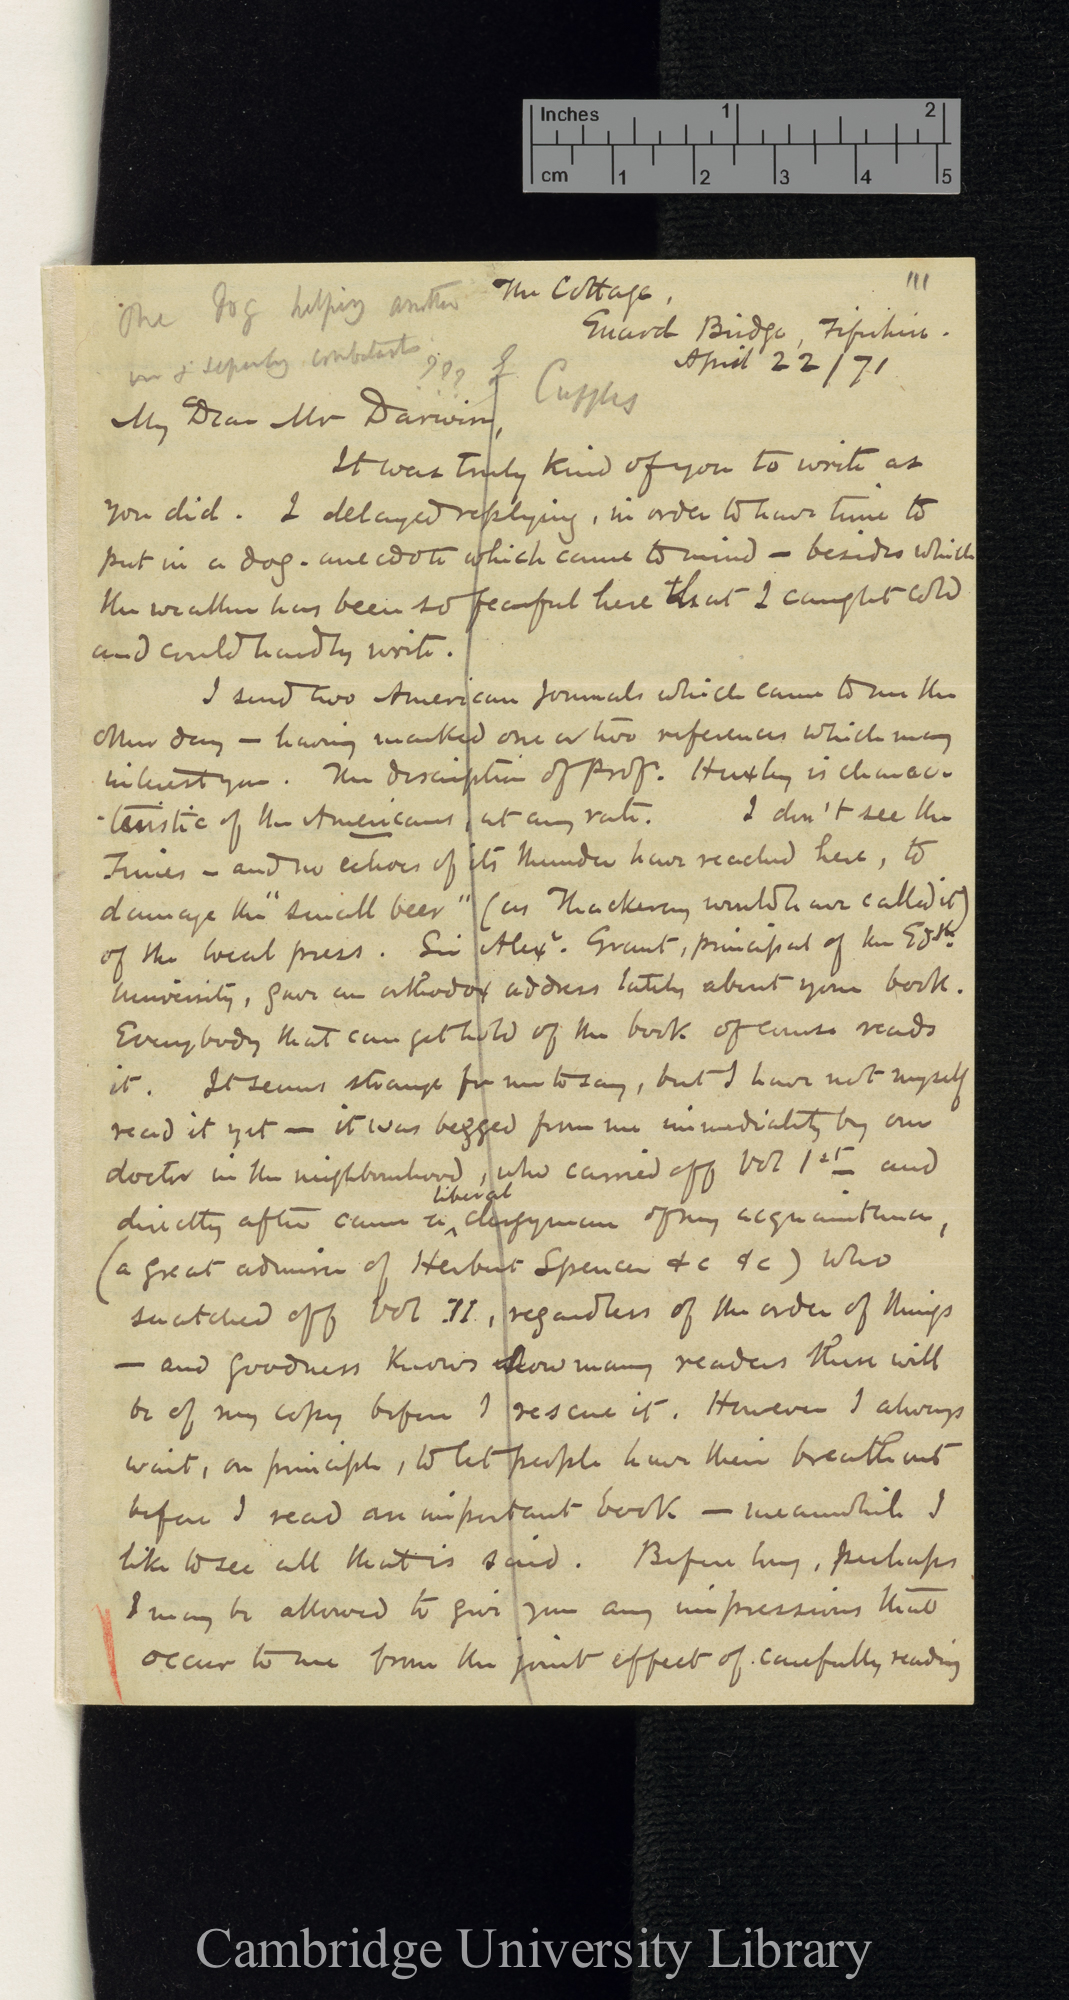 Inches 1 2
cm 1 2 3 4 5
The Cottage,
111
Guard Bridge, Fifeshire.
April 22 / 71
One Dog helping another
& separating combatants
???
Cupples
My Dear Mr Darwin,
It was truly kind of you to write as
you did. I delayed replying, in order to have time to
put in a dog-anecdote which came to mind — besides which
the weather has been so fearful here that I caught cold
and could hardly write.
I send two American journals which came to me the
other day — having marked one or two references which may
interest you. The description of Prof. Huxley is charac-
-teristic of the Americans, at any rate. I don't see the
Times — and no echoes of its thunder have reached here, to
damage the "small beer" (as Thackeray would have called it)
of the local press. Sir Alexr. Grant, principal of the Edbh.
University, gave an orthodox address lately about your book.
Everybody that can get hold of the book of course reads
it. It seems strange for me to say, but I have not myself
read it yet — it was begged from me immediately by our
doctor in the neighbourhood, who carried off Vol 1st and
directly after came a liberal clergyman of my acquaintance,
(a great admirer of Herbert Spencer &c &c) who
snatched off Vol II, regardless of the order of things
— and goodness knows how many readers there will
be of my copy before I rescue it. However I always
wait, on principle, to let people have their breath out
before I read an important book — meanwhile I
like to see all that is said. Before long, perhaps
I may be allowed to give you any impressions that
occur to me from the joint effect of carefully reading
Cambridge University Library